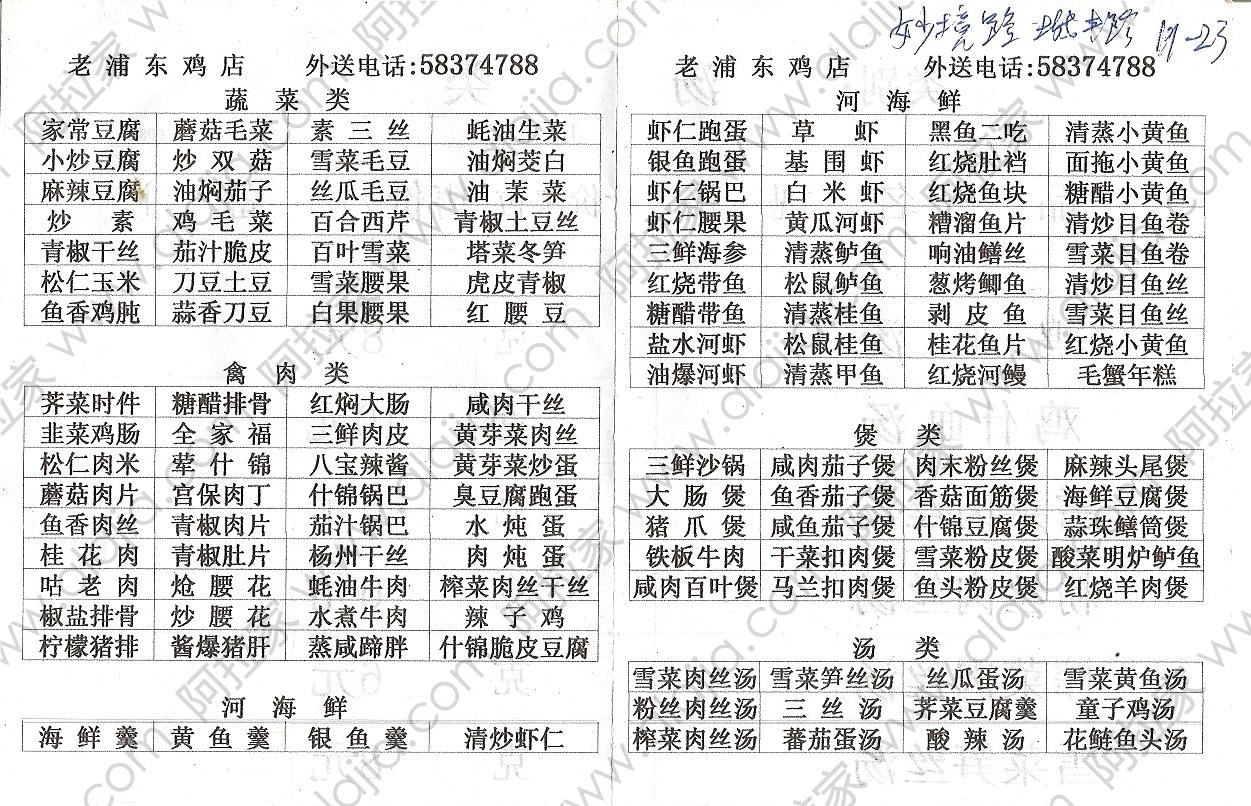 老浦东鸡店 外送电话:58374788
蔬菜类
家常豆腐 蘑菇毛菜 素三丝 蚝油生菜
小炒豆腐 炒双菇 雪菜毛豆 油焖茭白
麻辣豆腐 油焖茄子 丝瓜毛豆 油茉菜
炒素 鸡毛菜 百合西芹 青椒土豆丝
青椒干丝 茄汁脆皮 百叶雪菜 塔菜冬笋
松仁玉米 刀豆土豆 雪菜腰果 虎皮青椒
鱼香鸡肫 蒜香刀豆 白果腰果 红腰豆
禽肉类
荠菜时件 糖醋排骨 红焖大肠 咸肉干丝
韭菜鸡肠 全家福 三鲜肉皮 黄芽菜肉丝
松仁肉米 荤什锦 八宝辣酱 黄芽菜炒蛋
蘑菇肉片 宫保肉丁 什锦锅巴 臭豆腐跑蛋
鱼香肉丝 青椒肉片 茄汁锅巴 水炖蛋
桂花肉 青椒肚片 杨州干丝 肉炖蛋
咕老肉 炝腰花 蚝油牛肉 榨菜肉丝干丝
椒盐排骨 炒腰花 水煮牛肉 辣子鸡
柠檬猪排 酱爆猪肝 蒸咸蹄胖 什锦脆皮豆腐
河海鲜
海鲜羹 黄鱼羹 银鱼羹 清炒虾仁
妙境路 19-23
老浦东鸡店 外送电话:58374788
河海鲜
虾仁跑蛋 草虾 黑鱼二吃 清蒸小黄鱼
银鱼跑蛋 基围虾 红烧肚裆 面拖小黄鱼
虾仁锅巴 白米虾 红烧鱼块 糖醋小黄鱼
虾仁腰果 黄瓜河虾 糟溜鱼片 清炒目鱼卷
三鲜海参 清蒸鲈鱼 响油鳝丝 雪菜目鱼卷
红烧带鱼 松鼠鲈鱼 葱烤鲫鱼 清炒目鱼丝
糖醋带鱼 清蒸桂鱼 剥皮鱼 雪菜目鱼丝
盐水河虾 松鼠桂鱼 桂花鱼片 红烧小黄鱼
油爆河虾 清蒸甲鱼 红烧河鳗 毛蟹年糕
煲类
三鲜沙锅 咸肉茄子煲 肉末粉丝煲 麻辣头尾煲
大肠煲 鱼香茄子煲 香菇面筋煲 海鲜豆腐煲
猪爪煲 咸鱼茄子煲 什锦豆腐煲 蒜珠鳝筒煲
铁板牛肉 干菜扣肉煲 雪菜粉皮煲 酸菜明炉鲈鱼
咸肉百叶煲 马兰扣肉煲 鱼头粉皮煲 红烧羊肉煲
汤类
雪菜肉丝汤 雪菜笋丝汤 丝瓜蛋汤 雪菜黄鱼汤
粉丝肉丝汤 三丝汤 荠菜豆腐羹 童子鸡汤
榨菜肉丝汤 蕃茄蛋汤 酸辣汤 花鲢鱼头汤
阿拉家 www.alajia.com